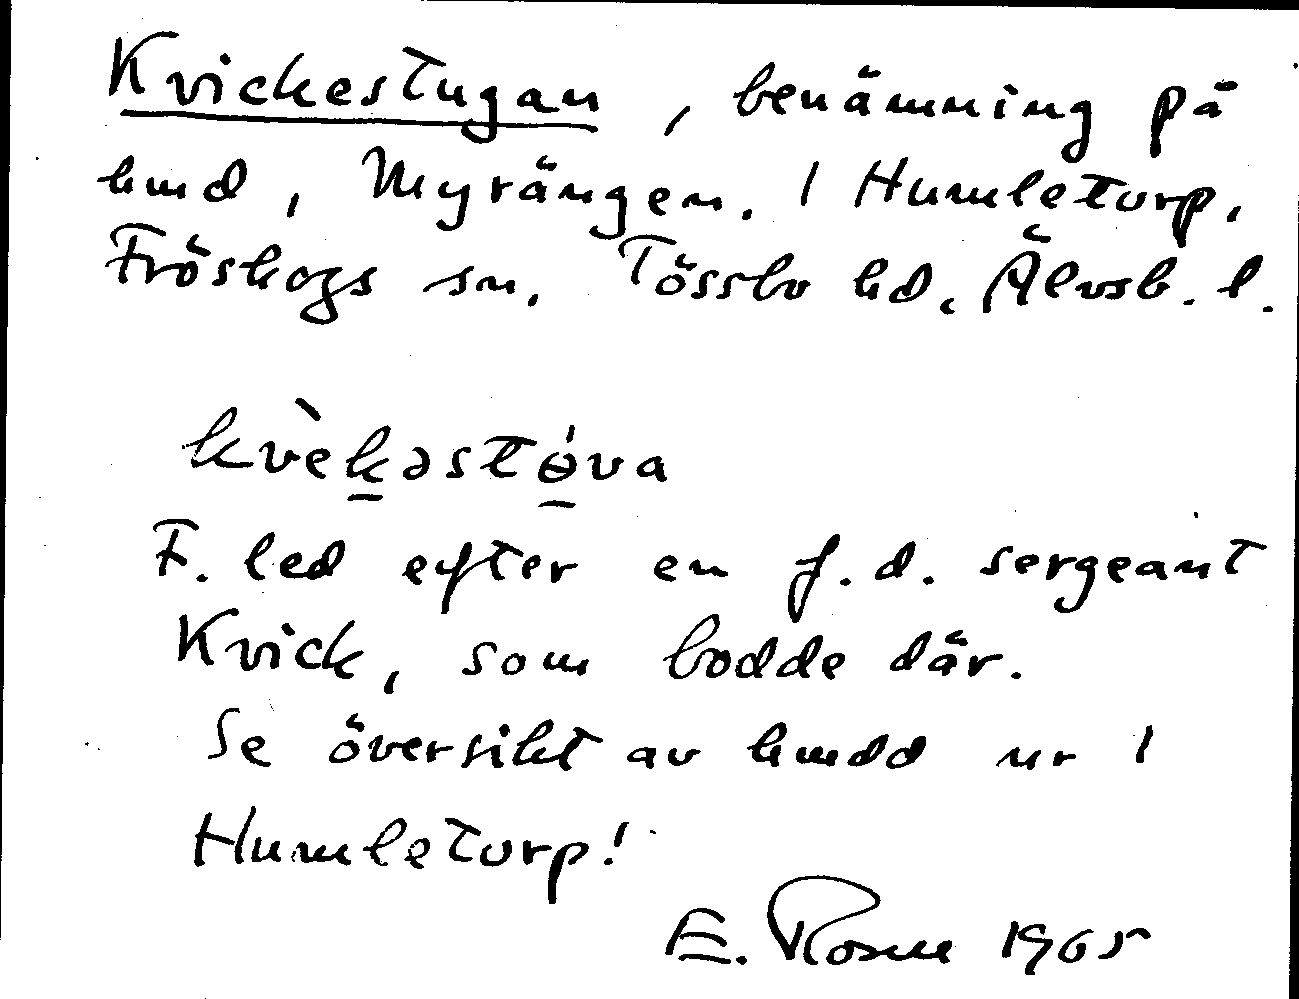 Kvickestugan, benämning på
hmd, Myrängen. 1 Humletorp,
Fröskogs sn. Tössbo hd, Älvsb. l.
kvèkəstɵ́va
F. led efter en f.d. sergeant
Kvick, som bodde där.
Se översikt av hmdd ur 1
Humletorp!
E. Rosne 1965